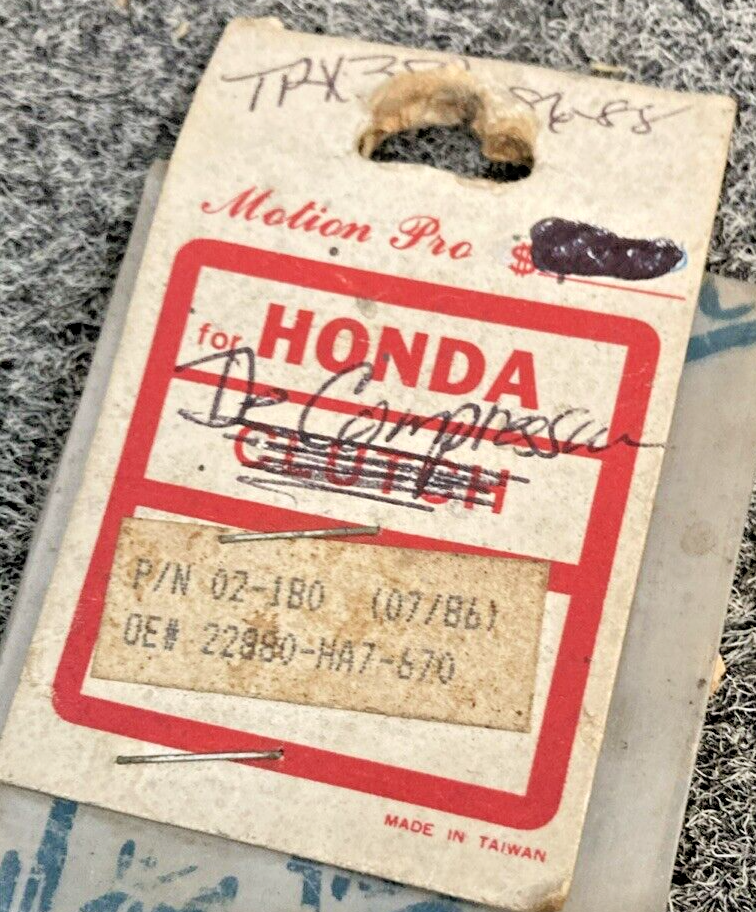 TRX350 86-88
Motion Pro $
for HONDA
De Compressor
CLUTCH
P/N 02-180 (07/86)
OE# 22880-HA7-670
MADE IN TAIWAN